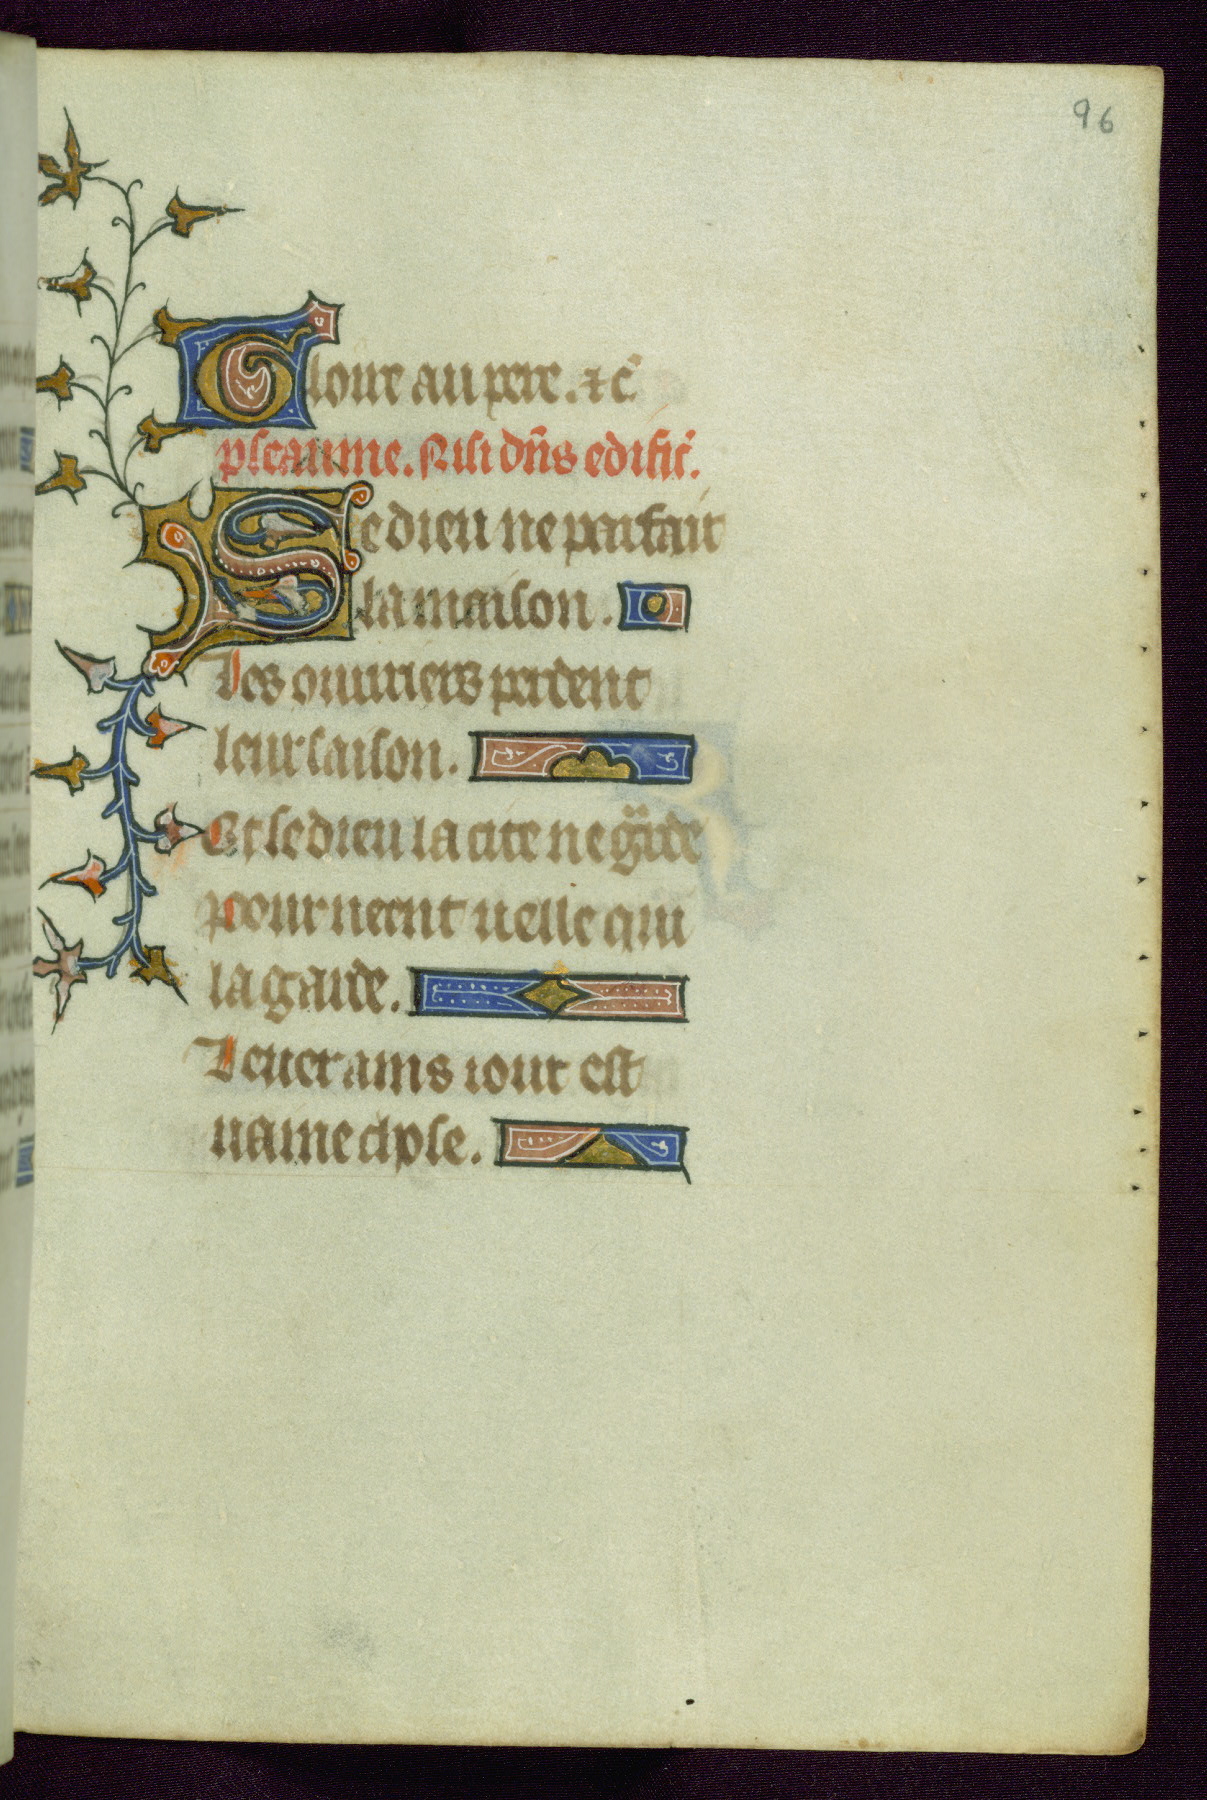 96
Gloire au pere. ⁊ c̄
pseaume. Nisi dn̄s edific̄.
Se dieu ne parfait
la maison.
Les ouuriers perdent
leur saison.
Et se dieu la cite ne garde
pour neent ueille qui
la garde.
Leuer ains iour est